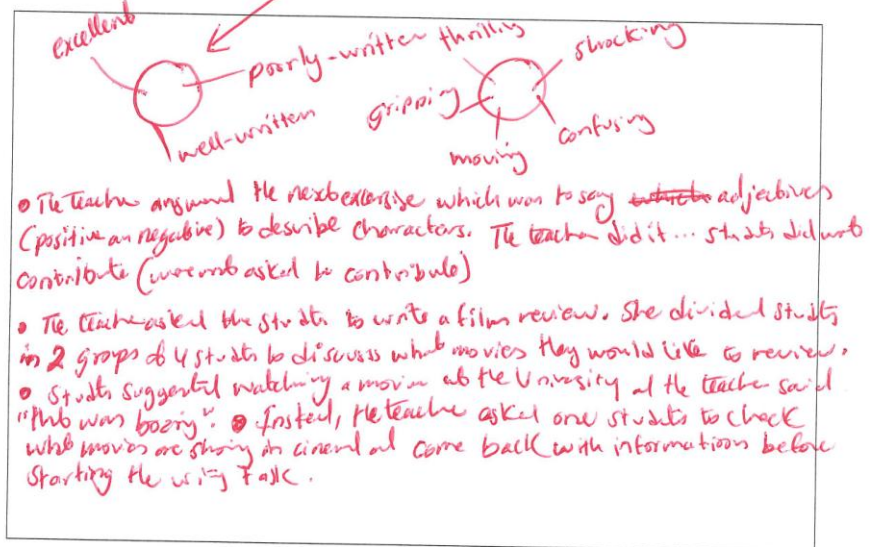 excellent
poorly-written
well-written
thrilling
shocking
gripping
confusing
moving
• The teacher answered the next exercise which was to say adjectives
(positive an negative) to describe characters. The teacher did it... students did not
contribute (were not asked to contribute)
• The teacher asked the students to write a film review. She divided students
in 2 groups of 4 students to discuss what movies they would like to review.
• Students suggested watching a movie at the University and the teacher said
"that was boring". • Instead, the teacher asked one students to check
what movies are showing in cinema and come back with informations before
starting the writing task.